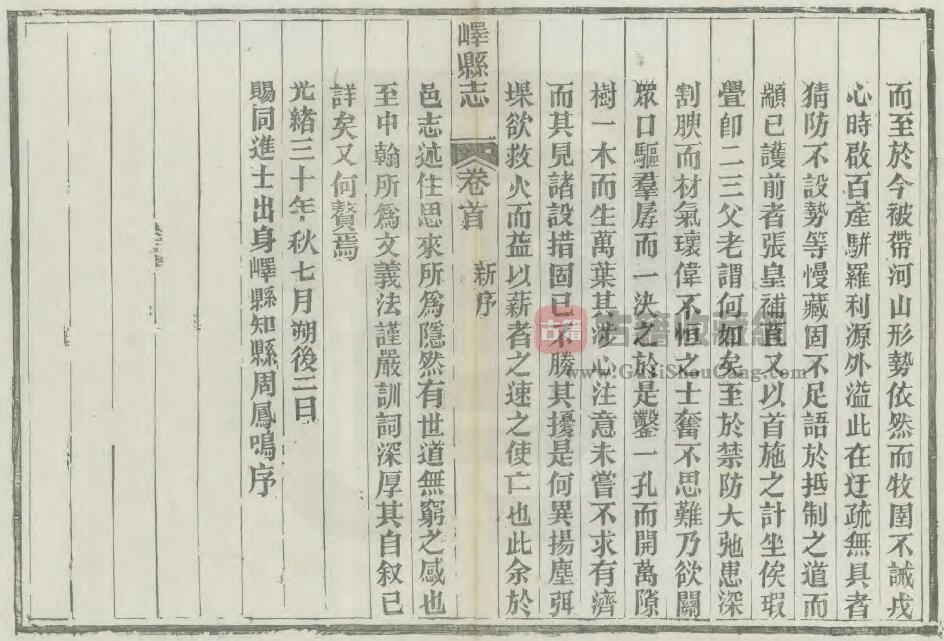 而至於今被帶河山形勢依然而牧圉不誡戎
心時啟百產駢羅利源外溢此在迂疏無具者
猜防不設勢等慢藏固不足語於抵制之道而
顓已護前者張皇補苴又以首施之計坐俟瑕
舋卽二三父老謂何如矣至於禁防大弛患深
割腴而材氣瓌偉不恒之士奮不思難乃欲關
眾口驅羣孱而一決之於是鑿一孔而開萬隙
樹一木而生萬葉其涉心注意未嘗不求有濟
而其見諸設措固已不勝其擾是何異揚塵弭
堁欲救火而益以薪者之速之使亡也此余於
嶧縣志 卷首 新序
邑志述往思來所為隱然有世道無窮之感也
至中翰所為文義法謹嚴訓詞深厚其自叙已
詳矣又何贅焉
光緒三十年秋七月朔後二日
賜同進士出身嶧縣知縣周鳳鳴序
古籍
古籍收藏網
www.GuJiShouCang.com